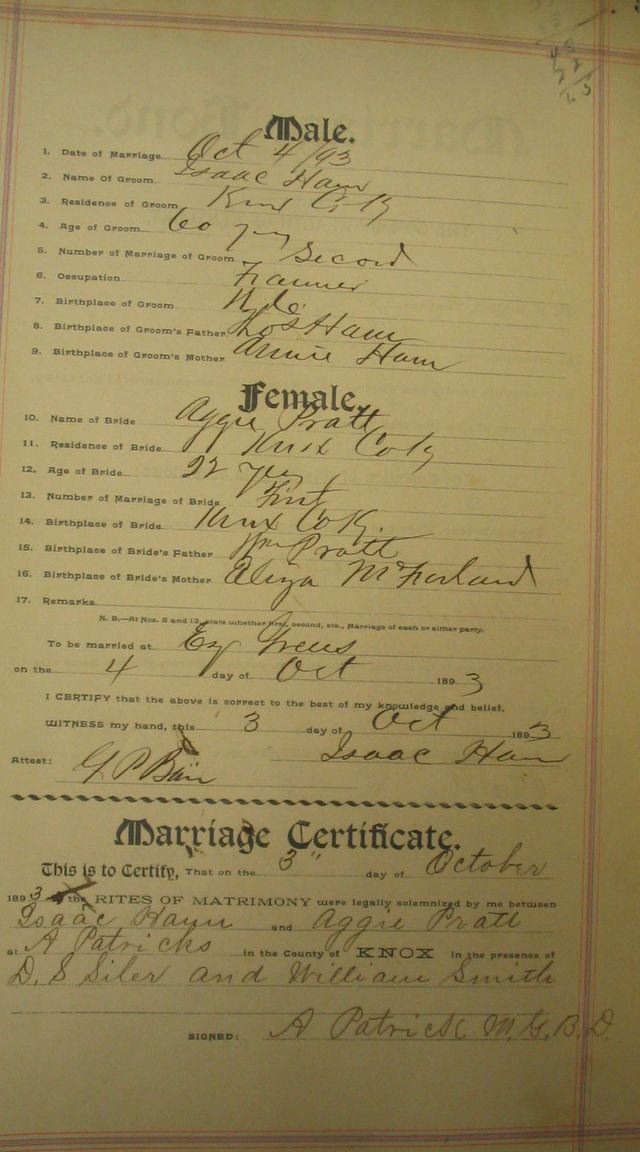 Male.
1. Date of Marriage Oct 4/93
2. Name Of Groom Isaac Ham
3. Residence of Groom Knx Co Ky
4. Age of Groom 60 yrs
5. Number of Marriage of Groom Second
6. Occupation Farmer
7. Birthplace of Groom N.C.
8. Birthplace of Groom's Father Thos Ham
9. Birthplace of Groom's Mother Annie Ham
Female.
10. Name of Bride Aggie Pratt
11. Residence of Bride Knox Co Ky
12. Age of Bride 22 yrs
13. Number of Marriage of Bride First
14. Birthplace of Bride Knox Co K.
15. Birthplace of Bride's Father Wm Pratt
16. Birthplace of Bride's Mother Eliza McFarland
17. Remarks
N. B.—At Nos. 5 and 13, state whether first, second, etc., Marriage of each or either party.
To be married at
on the 4 day of Oct 1893
I CERTIFY that the above is correct to the best of my knowledge and belief.
WITNESS my hand, this 3 day of Oct 1893
Isaac Ham
Attest: G P Bain
Marriage Certificate.
This is to Certify, That on the 3" day of October
1893 the RITES OF MATRIMONY were legally solemnized by me between
Isaac Hamm and Aggie Pratt
at A Patricks in the County of KNOX in the presence of
D. S Siler and William Smith
SIGNED: A Patrick M.G.B.D.